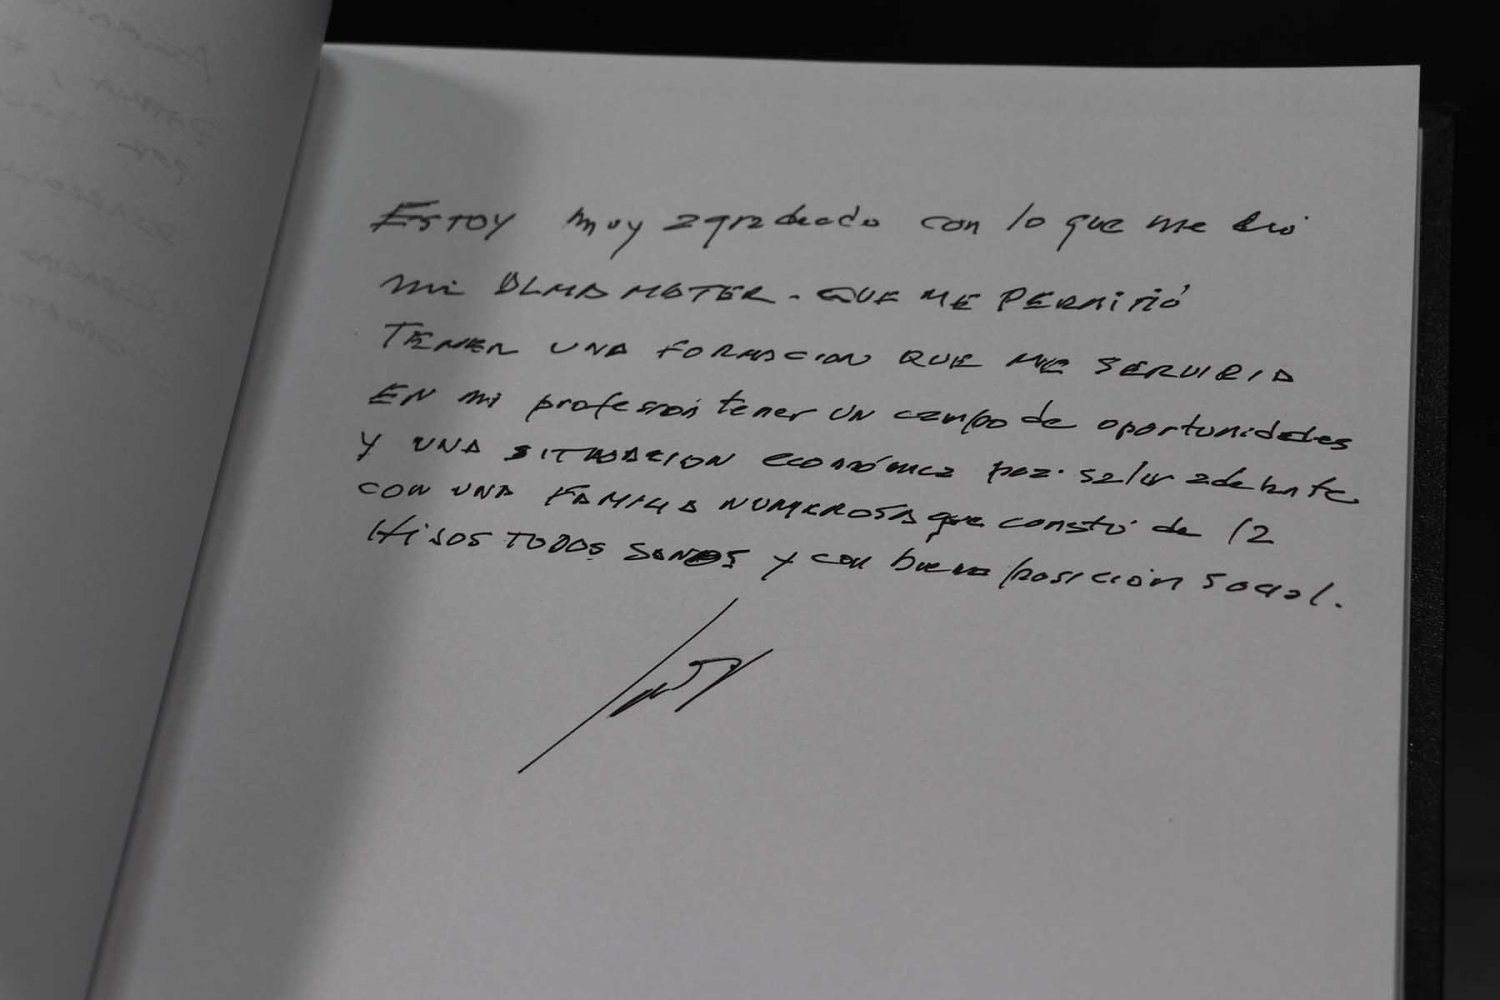 ESTOY muy agradecido con lo que me dio
mi ALMA MATER - QUE ME PERMITIÓ
TENER UNA FORMACION QUE ME SERVIRIA
EN mi profesión tener UN campo de oportunidades
Y UNA SITUACION económica para salir adelante
CON UNA FAMILIA NUMEROSA que constó de 12
HIJOS TODOS SANOS y con buena posición social.